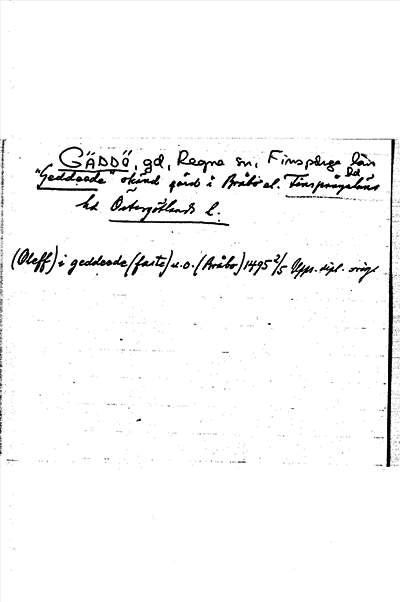 GÄDDÖ, gd, Regna sn, Finspånga län
"Geddeode" okänd gård i Bråbo el. Finspångaläns hd
hd Östergötlands l.
(Oleff) i geddeode (faste) u.o. (Bråbo) 1495 2/5 Upps. dipl. orig.